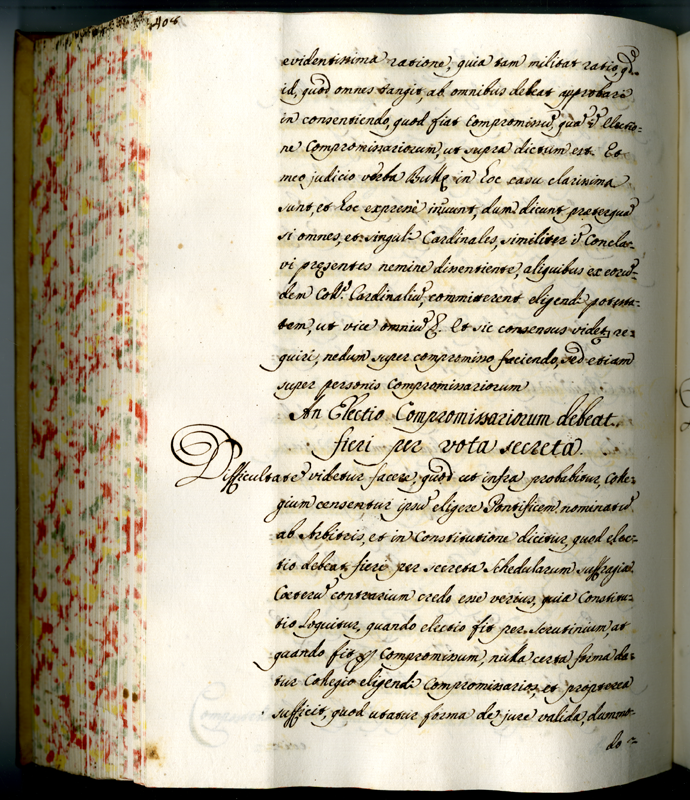 408
evidentissima ratione, quia tam militat ratio, qd
id, quod omnes tangit, ab omnibus debeat approbari
in consentiendo, quod fiat Compromissũ, quã ĩ Electio-
ne Compromissariorum, ut supra dictum est. Et
meo judicio verba Bullę in hoc casu clarissima
sunt, et hoc expresse innuunt, dum dicunt præterquã
si omnes, et singuli Cardinales, similiter ĩ Concla-
vi presentes nemine dissentiente, aliquibus ex eorũ-
dem Coll. Cardinaliũ, committerent eligendi potesta-
tem, ut vice omniũ &. Et sic consensus videtur re-
quiri, nedum super compromisso faciendo, sed etiam
super personis Compromissariorum
An Electio Compromissariorum debeat
fieri per vota secreta.
Difficultatẽ videtur facere, quod ut infra probabitur, Colle-
gium censentur ipsũ eligere Pontificem, nominatũ
ab Arbitris, et in Constitutione dicitur, quod elec-
tio debeat fieri per secreta schedularum suffragia.
Cæterũ contrarium credo esse verius, quia Constitu-
tio loquitur, quando electio fit per scrutinium, at
quando fit p Compromissum, nulla certa forma da-
tur Collegio eligendi Compromissarios, et propterea
sufficit, quod utatur forma de jure valida, dummo-
do